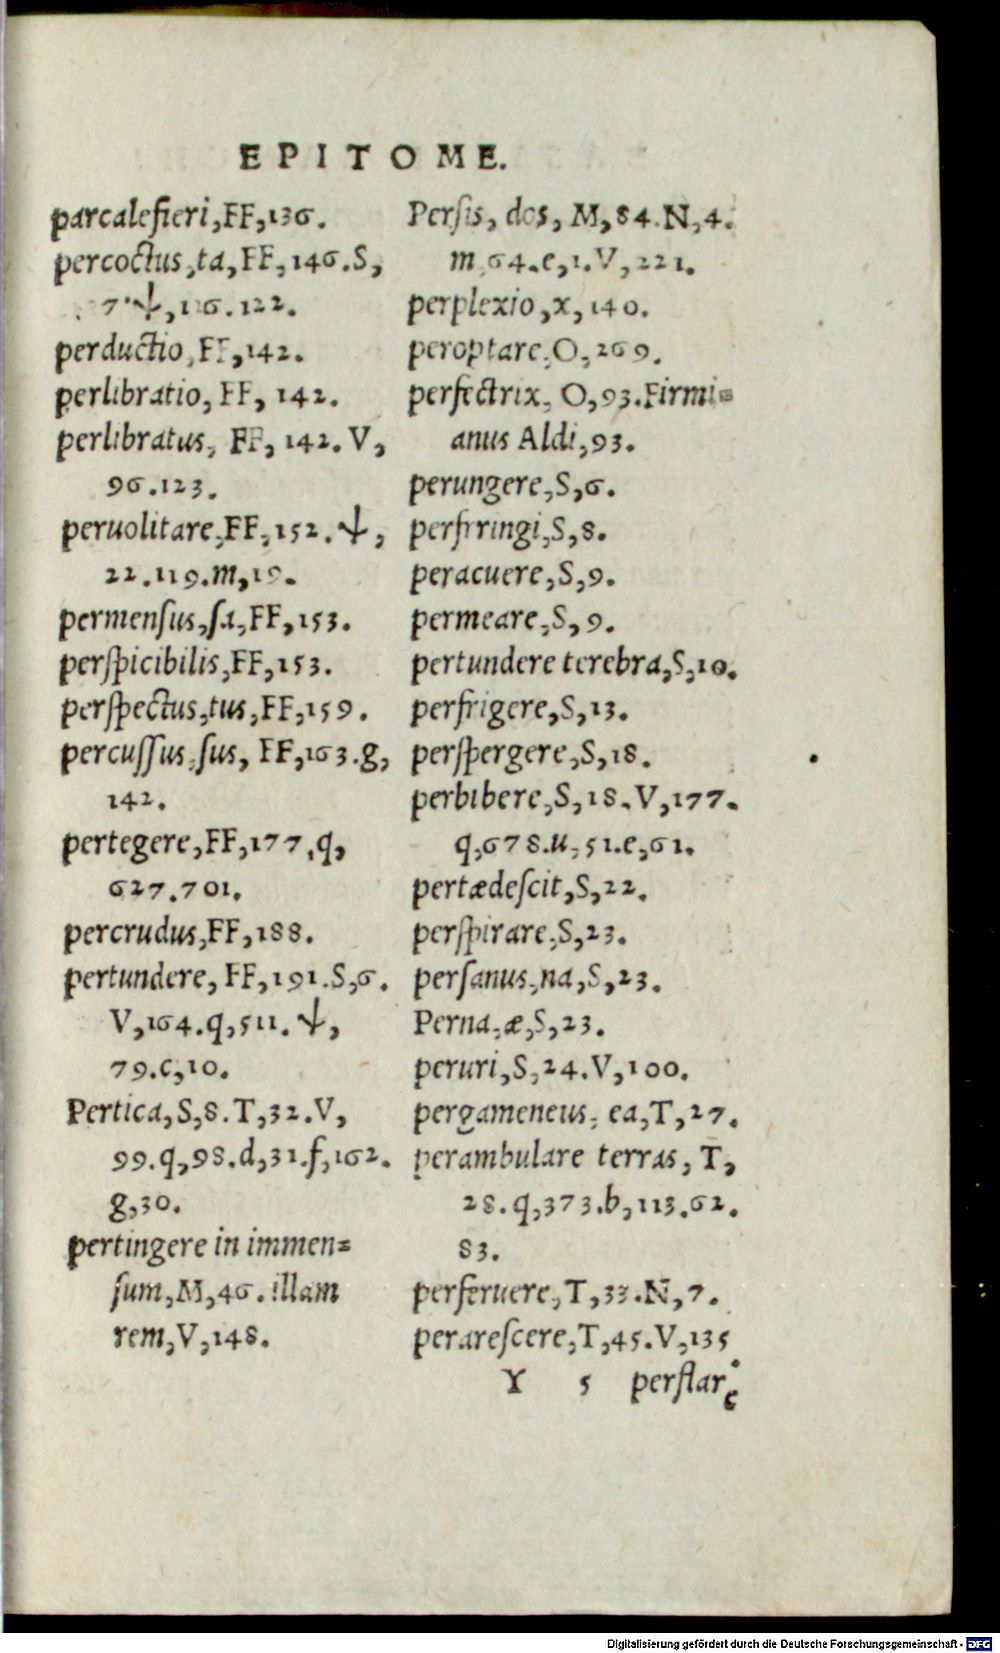 EPITOME.
parcalefieri,FF,136.
percoctus,ta,FF,146.S,
7.ψ,116.122.
perductio,FF,142.
perlibratio, FF, 142.
perlibratus, FF, 142.V,
96.123.
peruolitare,FF,152.ψ,
22.119.m,19.
permensus,sa,FF,153.
perspicibilis,FF,153.
perspectus,tus,FF,159.
percussus,sus, FF,163.g,
142.
pertegere,FF,177.q,
627.701.
percrudus,FF,188.
pertundere, FF,191.S,6.
V,164.q,511.ψ,
79.c,10.
Pertica,S,8.T,32.V,
99.q,98.d,31.f,162.
g,30.
pertingere in immen=
sum,M,46.illam
rem,V,148.
Persis, dos, M,84.N,4.
m,64.e,1.V,221.
perplexio,x,140.
peroptare,O,269.
perfectrix, O,93.Firmi=
anus Aldi,93.
perungere,S,6.
perfrringi,S,8.
peracuere,S,9.
permeare,S,9.
pertundere terebra,S,10.
perfrigere,S,13.
perspergere,S,18.
perbibere,S,18.V,177.
q,678.u,51.e,61.
pertædescit,S,22.
perspirare,S,23.
persanus,na,S,23.
Perna,æ,S,23.
peruri,S,24.V,100.
pergameneus, ea,T,27.
perambulare terras, T,
28.q,373.b,113.62.
83.
perferuere,T,33.N,7.
perarescere,T,45.V,135.
Y 5 perstare
Digitalisierung gefördert durch die Deutsche Forschungsgemeinschaft - DFG